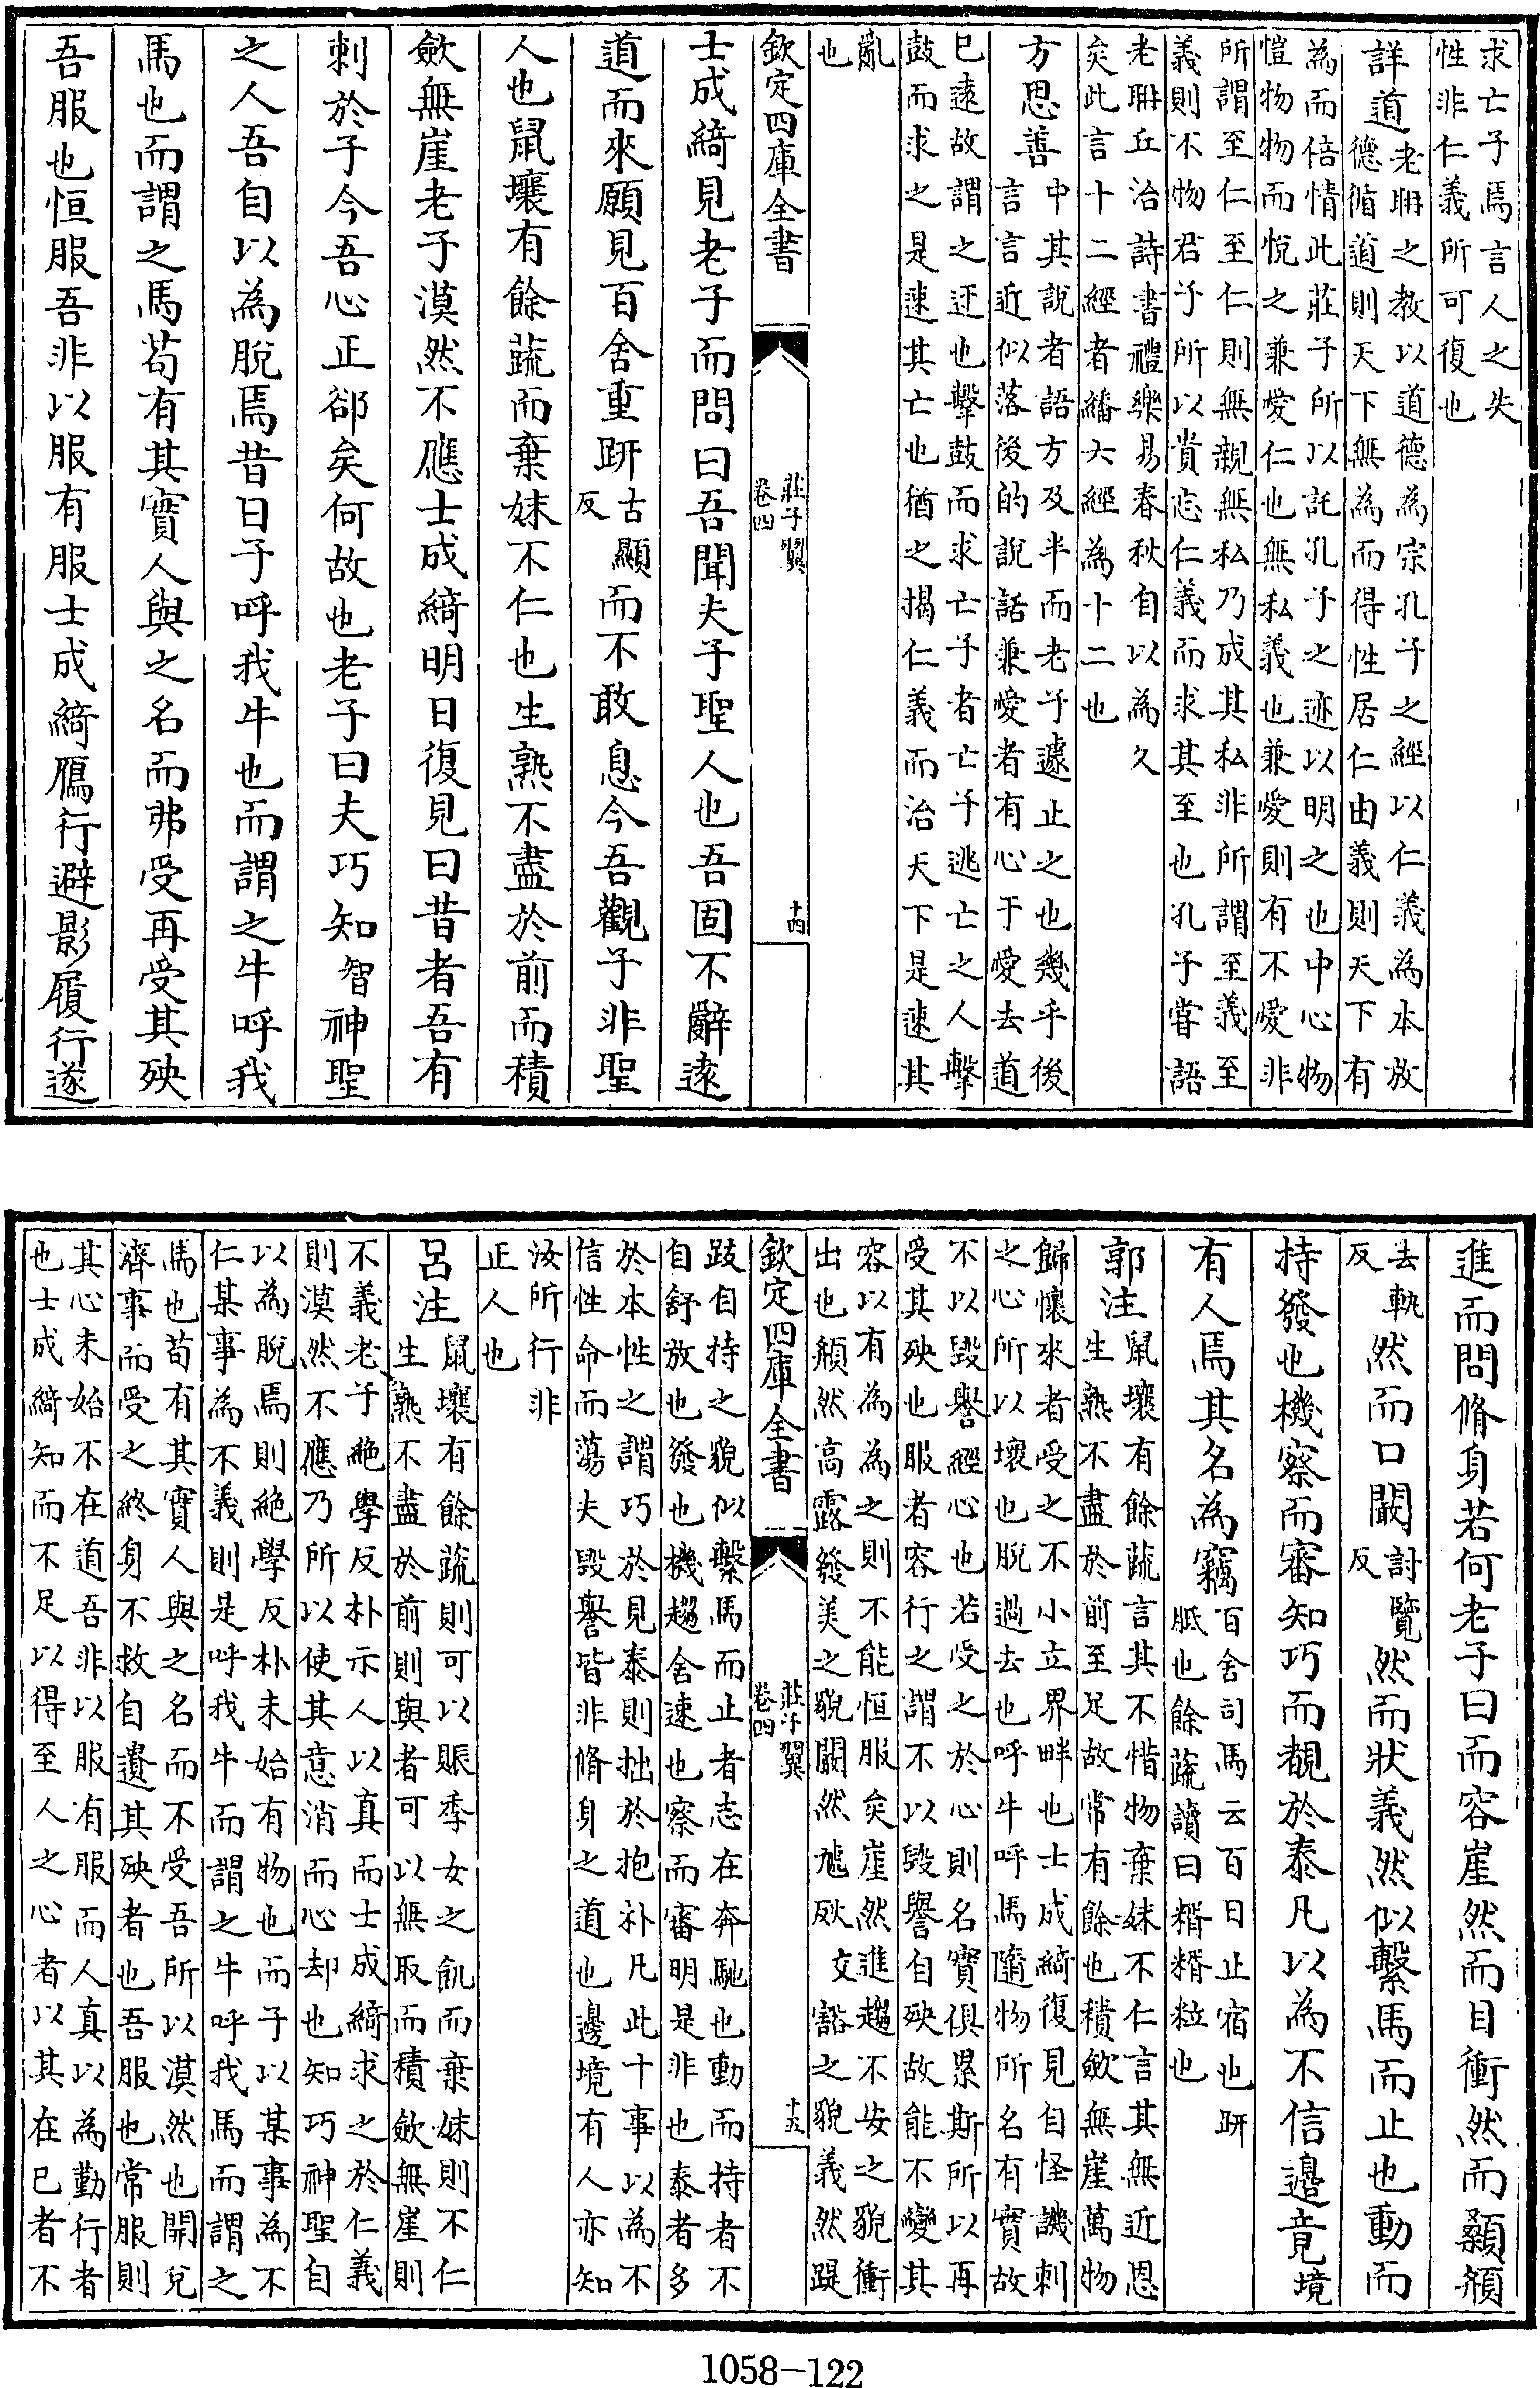 求亡子焉言人之失
性非仁義所可復也
詳道老𥅆之教以道德為宗孔子之經以仁義為本放
德循道則天下無為而得性居仁由義則天下有
為而倍情此莊子所以託孔子之迹以明之也中心物
愷物物而恱之兼愛仁也無私義也兼愛則有不愛非
所謂至仁至仁則無親無私乃成其私非所謂至義至
義則不物君子所以貴忘仁義而求其至也孔子嘗語
老𥅆丘治詩書禮樂易春秋自以為久
矣此言十二經者繙六經為十二也
方思善中其說者語方及半而老子遽止之也幾乎後
言言近似落後的說話兼愛者有心于愛去道
已遠故謂之迂也擊鼓而求亡子者亡子逃亡之人擊
鼓而求之是速其亡也猶之揭仁義而治天下是速其
亂
也
欽定四庫全書
莊子翼
卷四
十四
士成綺見老子而問曰吾聞夫子聖人也吾固不辭遠
道而來願見百舍重趼古顯反而不敢息今吾觀子非聖
人也鼠壤有餘蔬而棄妹不仁也生熟不盡於前而積
歛無崖老子漠然不應士成綺明日復見曰昔者吾有
刺於子今吾心正郤矣何故也老子曰夫巧知智神聖
之人吾自以為脫焉昔日子呼我牛也而謂之牛呼我
馬也而謂之馬苟有其實人與之名而弗受再受其殃
吾服也恒服吾非以服有服士成綺鴈行避影履行遂
進而問脩身若何老子曰而容崖然而目衝然而顙頯
去軌反然而口闞討覽反然而狀義然似繫馬而止也動而
持發也機察而審知巧而覩於泰凡以為不信邊竟境
有人焉其名為竊百舍司馬云百日止宿也趼
胝也餘蔬讀曰糈糈粒也
郭注鼠壤有餘蔬言其不惜物棄妹不仁言其無近恩
生熟不盡於前至足故常有餘也積歛無崖萬物
歸懷來者受之不小立界畔也士成綺復見自怪譏刺
之心所以壞也脫過去也呼牛呼馬隨物所名有實故
不以毀譽經心也若受之於心則名實俱累斯所以再
受其殃也服者容行之謂不以毀譽自殃故能不變其
容以有為為之則不能恒服矣崖然進趨不安之貌衝
出也頯然高露發美之貌闞然虓㕮交豁之貌義然踶
欽定四庫全書
莊子翼
卷四
十五
跂自持之貌似繫馬而止者志在奔馳也動而持者不
自舒放也發也機趨舍速也察而審明是非也泰者多
於本性之謂巧於見泰則拙於抱朴凡此十事以為不
信性命而蕩夫毀譽皆非脩身之道也邊境有人亦知
汝所行非
正人也
呂注鼠壤有餘蔬則可以賑季女之飢而棄妹則不仁
生熟不盡於前則與者可以無取而積歛無崖則
不義老子絶學反朴示人以真而士成綺求之於仁義
則漠然不應乃所以使其意消而心却也知巧神聖自
以為脫焉則絶學反朴未始有物也而子以某事為不
仁某事為不義則是呼我牛而謂之牛呼我馬而謂之
馬也苟有其實人與之名而不受吾所以漠然也開兌
濟事而受之終身不救自遺其殃者也吾服也常服則
其心未始不在道吾非以服有服而人真以為勤行者
也士成綺知而不足以得至人之心者以其在已者不
1058-122